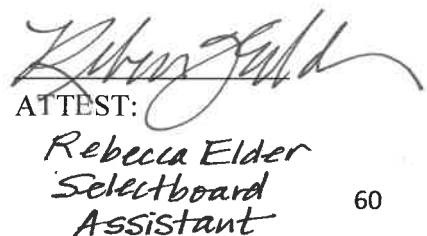 ATTEST:
Rebecca Elder
Selectboard
Assistant
60